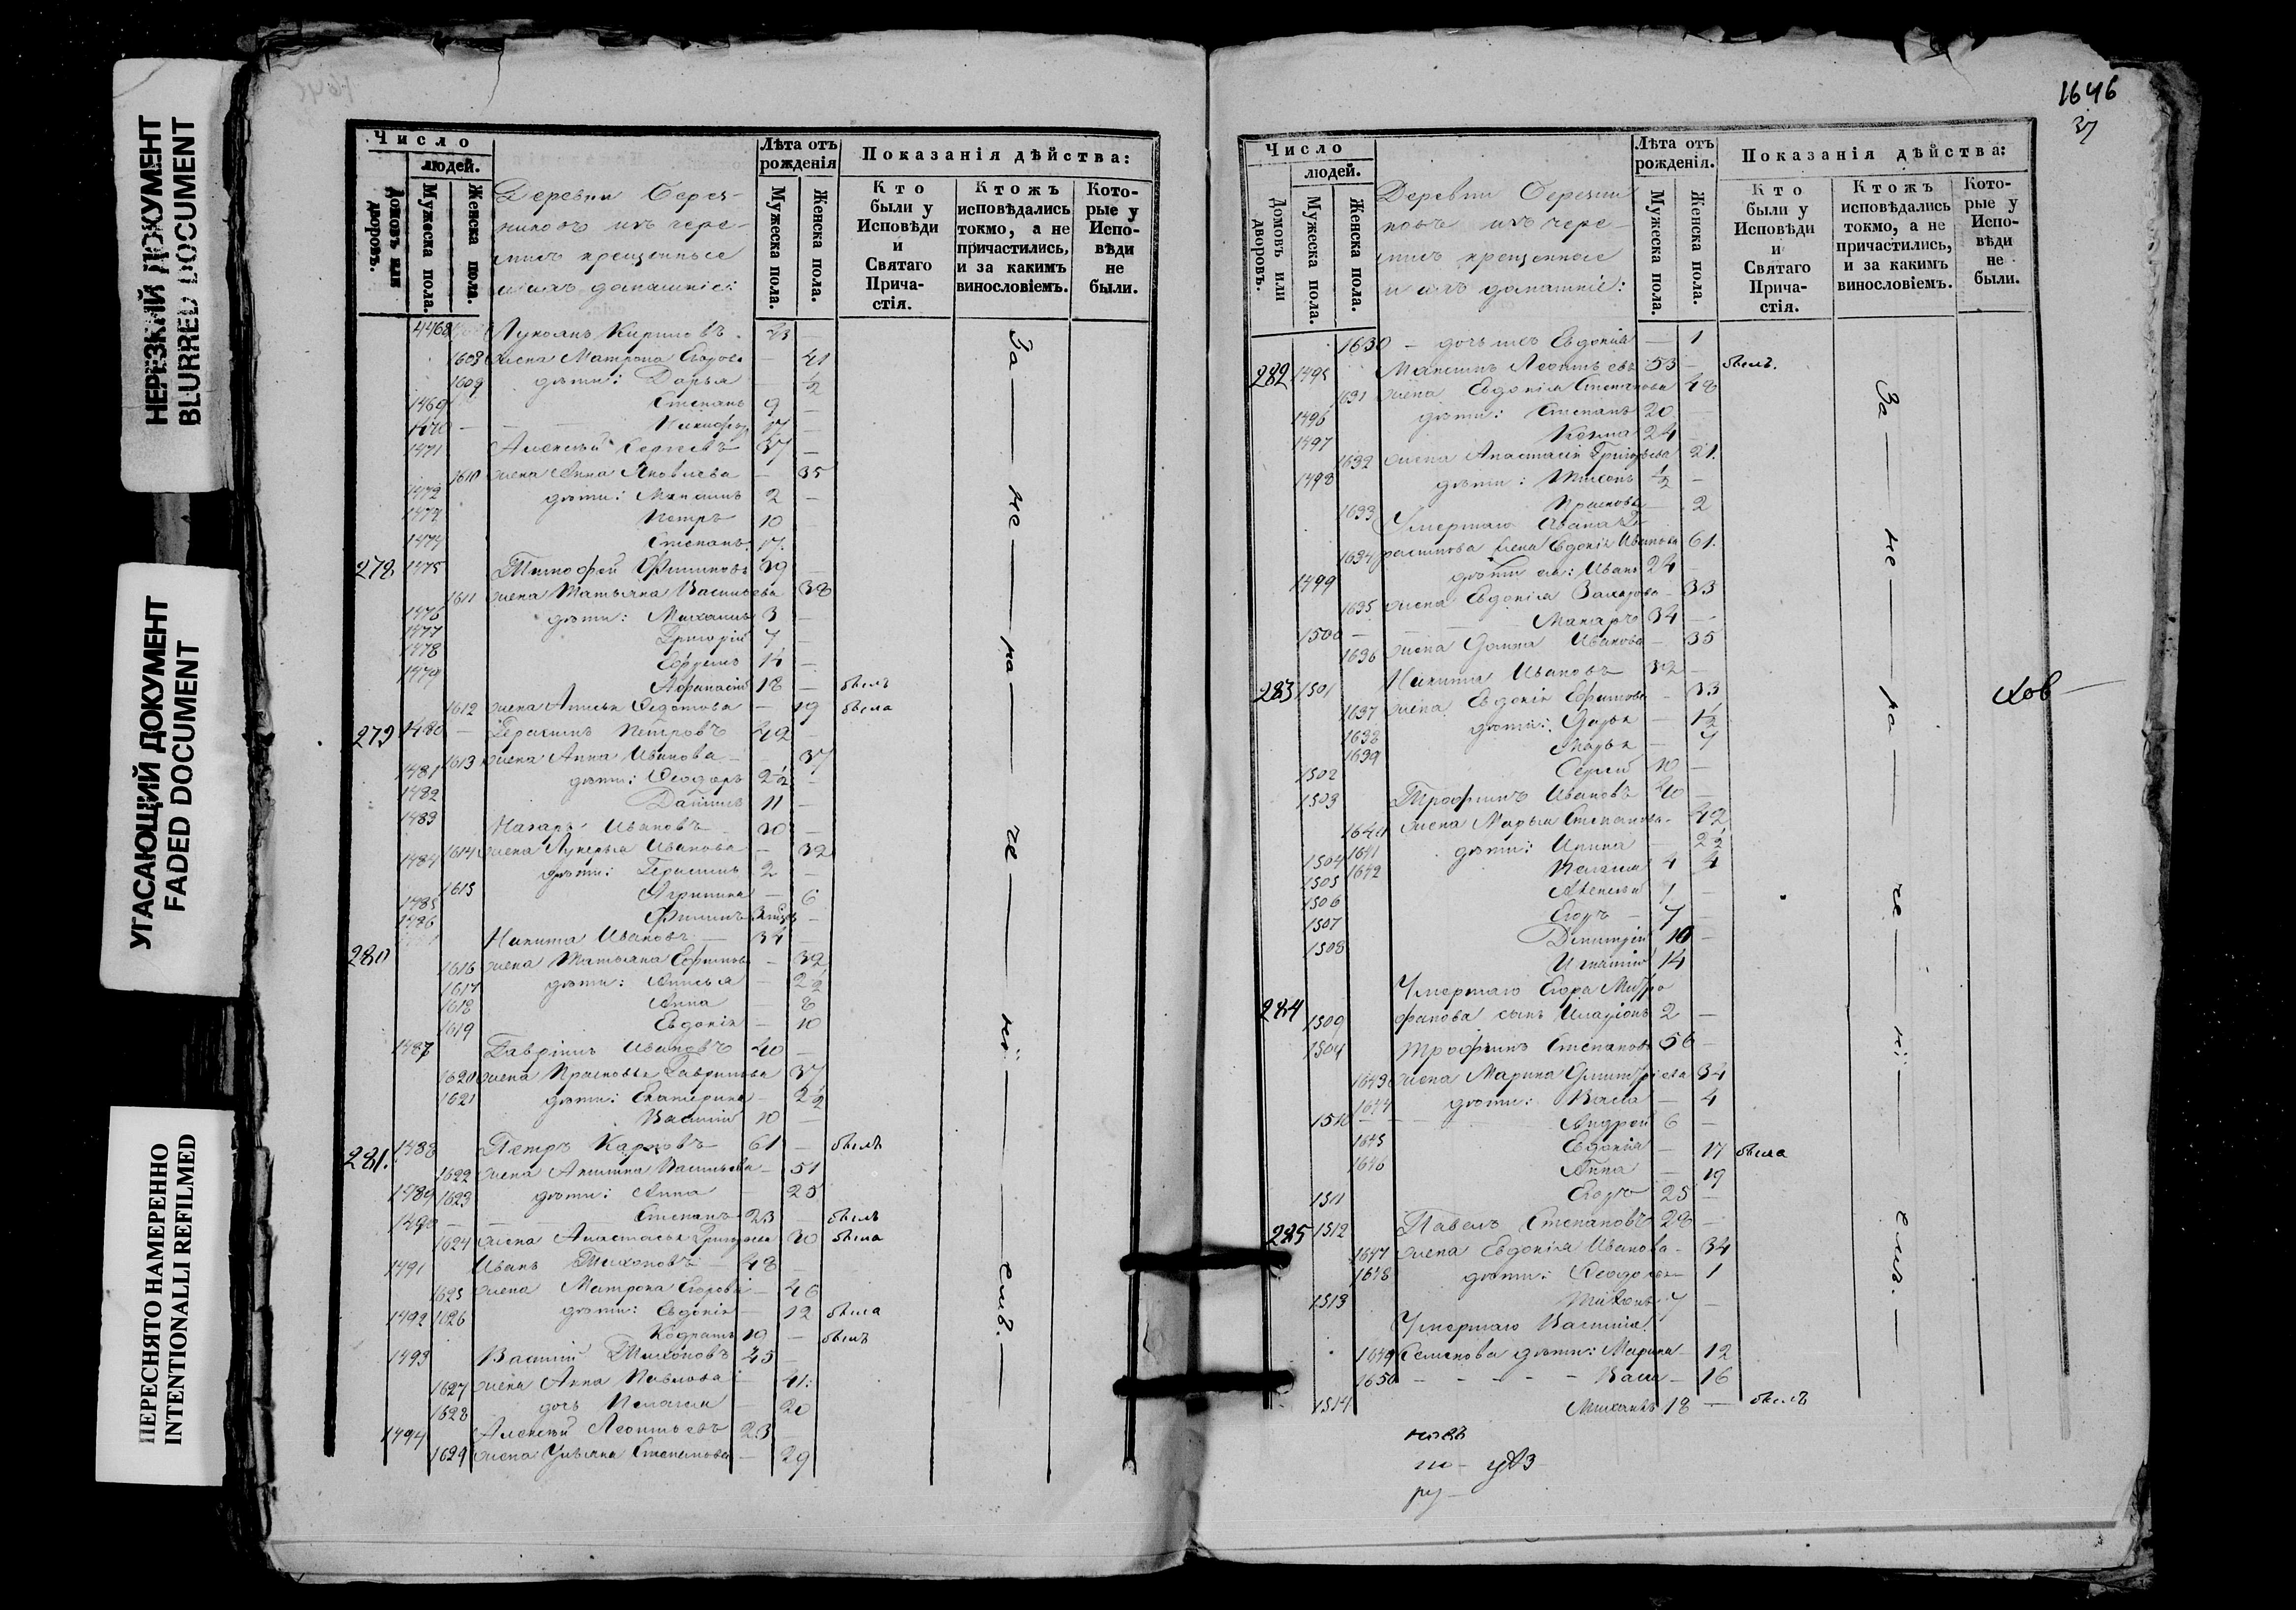 НЕРЕЗКИЙ ДОКУМЕНТ
BLURRED DOCUMENT
УГАСАЮЩИЙ ДОКУМЕНТ
FADED DOCUMENT
ПЕРЕСНЯТО НАМЕРЕННО
INTENTIONALLI REFILMED
Число
людей.
Домовъ или дворовъ.
Мужеска пола.
Женска пола.
Деревни Берез-
никовъ изъ чере-
мисъ крещенные
и ихъ домашніе:
Лѣта отъ рожденія
Мужеска пола.
Женска пола.
Показанія дѣйства:
Кто были у Исповѣди и Святаго Прича- стія.
Ктожъ исповѣдались токмо, а не причастились, и за какимъ винословіемъ.
Кото- рые у Испо- вѣди не были.
1468 Лукоянъ Кириловъ 43 —
1608 жена Матрона Егорова — 41
1609 дѣти: Дарья — ½
1469 Степанъ 9 —
1470 — Никифоръ 17 —
1471 Алексѣй Сергеевъ 37 —
1610 жена Анна Яковлева — 35
1472 дѣти: Максимъ 2 —
Петръ 10
1474 Степанъ 17.
278 1475 Тимофей Филиповъ 39 —
1611 жена Татьяна Васильева 38
1476 дѣти: Михаилъ 3 —
1477 Григорій 7 —
1478 Ефремъ 14 —
1479 Афанасій 18 — былъ
1612 жена Анисья Федотова — 19 была
279 1480 — Герасимъ Петровъ 42 —
1613 жена Анна Иванова — 37
1481 дѣти: Феодоръ 2½ —
1482 Даніилъ 11 —
1483 Назаръ Ивановъ 30 —
1614 жена Лукерья Иванова — 32
1484 дѣти: Герасимъ 2 —
1615 Агрипина — 6
1485
1486 Филипъ
280 Никита Ивановъ — 34 —
1616 жена Татьяна Ефимова — 32
1617 дѣти: Анисья — 2½
1618 Анна — 8
1619 Евдокія — 10
1487 Гавріилъ Ивановъ 40 —
1620 жена Прасковья Гаврилова 37
1621 дѣти: Екатерина — 2½
Василій 10 —
281. 1488 Петръ Карповъ 61 — былъ
1622 жена Акилина Васильева — 51
1489 1623 дѣти: Анна — 25
1490 — Степанъ 23 — былъ
1624 жена Анастасья Григорьева 30 была
1491 Иванъ Тихоновъ — 48 —
1625 жена Матрона Егорова — 46
1492 1626 дѣти: Евдокія — 12 была
Кодратъ 19 — былъ
1493 Василій Тихоновъ 45 —
1627 жена Анна Павлова 41:
1628 дочь Пелагея 20
1494 Алексѣй Леонтьевъ 23
1629 жена Ульяна Степанова — 29
За — не — на — че — ні — емъ. —
1646
37
Число
людей.
Домовъ или дворовъ.
Мужеска пола.
Женска пола.
Деревни Березни
ковъ изъ чере-
мисъ крещенные
и ихъ домашніе:
Лѣта отъ рожденія.
Мужеска пола.
Женска пола.
Показанія дѣйства:
Кто были у Исповѣди и Святаго Прича- стія.
Ктожъ исповѣдались токмо, а не причастились, и за какимъ винословіемъ.
Кото- рые у Испо- вѣди не были.
1630 — дочь ихъ Евдокія — 1
282 1495 Максимъ Леонтьевъ 53 — былъ.
1631 жена Евдокія Степанова 48
1496 дѣти: Степанъ 20
1497 Козма 24
1632 жена Анастасія Григорьева 21.
1498 дѣти: Тихонъ ½ —
1633 Прасковья — 2
Умершаго Ивана Ге-
1634 расимова жена Евдокія Иванова 61.
1499 дѣти ея: Иванъ 24
1635 жена Евдокія Захарова — 33
1500 — Макаръ 34 —
1636 жена Домна Иванова — 35
283 1501 Никита Ивановъ 32 —
1637 жена Евдокія Ефимова — 33
1638 дѣти: Дарья — 1½
1639 Марья — 7
1502 Сергей 10 —
1503 Трофимъ Ивановъ 40 —
1640 жена Марья Степанова — 42
1641 дѣти: Ирина — 2½
1504 1642 Пелагея 4 4
1505 Алексѣй 1 —
1506 Егоръ — 7 —
1507 Димитрій 10 —
1508 Игнатій 14
Умершаго Егора Митро
284 1509 фанова сынъ Иларіонъ 2 —
1509 Трофимъ Степановъ 56 —
1643 жена Марина Димитріева 34
1644 дѣти: Васса — 4
1510 — Андрей 6 —
1645 Евдокія — 17 была
1646 Анна — 19
1511 Егоръ 25 —
285 1512 Павелъ Степановъ 28 —
1647 жена Евдокія Иванова — 34
1648 дѣти: Феодора — 1
1513 Тихонъ 7 —
Умершаго Василія
1649 Семенова дѣти: Марина — 12
1650 — — — — — Васса — 16
1514 Михаилъ 18 — былъ
За — не — на — че — ні — емъ. —
ховъ —